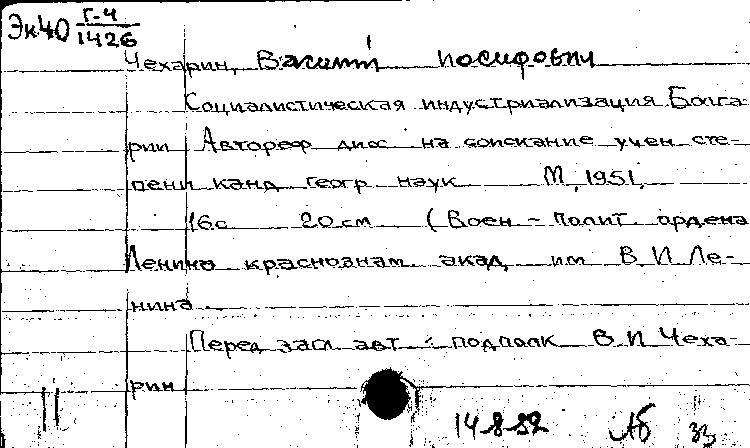 Эк40 Г-4/1426
Чехарин, Василий Иосифович
Социалистическая индустриализация Болга-
рии Автореф дисс на соискание учен сте-
пени канд геогр наук М, 1951,
16с 20 см (Воен-полит ордена
Ленина краснознам акад, им В И Ле-
нина.
Перед загл авт: подполк В И Чеха-
рин
11 14-8-52